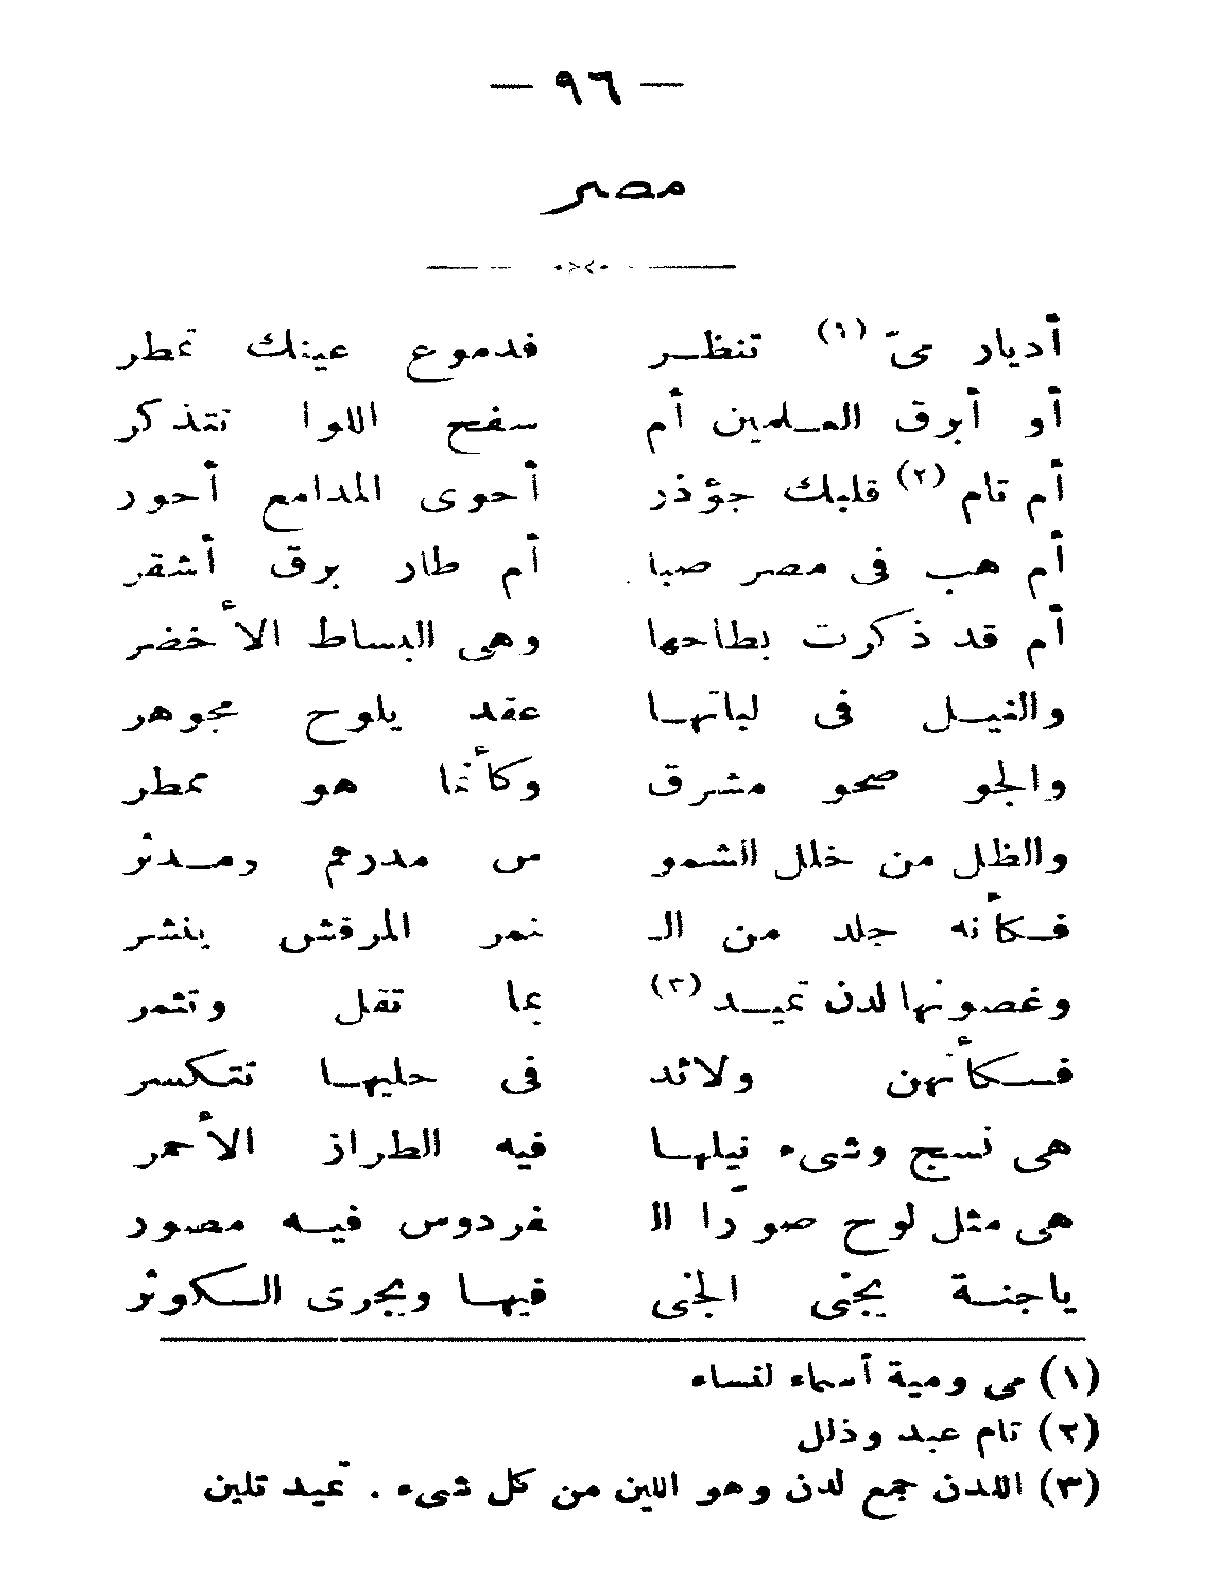 — ٩٦ —
مصر
أديار مىّ (١) تنظر فدموع عينك تمطر
أو أبرق العلمين أم سفح اللوا تتذكر
أم تام (٢) قلبك جؤذر أحوى المدامع أحور
أم هب فى مصر صبا أم طار برق أشقر
أم قد ذكرت بطاحها وهى البساط الأخضر
والنيل فى لباتها عقد يلوح مجوهر
والجو صحو مشرق وكأنما هو ممطر
والظل من خلل الشمو س مدرهم ومدنر
فكأنه جلد من الـ نمر المرقش ينشر
وغصونها لدن تميد (٣) بما تقل وتثمر
فكأنهن ولائد فى حليها تتكسر
هى نسج وشىء نيلها فيه الطراز الأحمر
هى مثل لوح صوّرا ال فردوس فيه مصور
ياجنة يجنى الجنى فيها ويجرى الكوثر
(١) مى ومية أسماء لنساء
(٢) تام عبد وذلل
(٣) اللدن جمع لدن وهو اللين من كل شىء . تميد تلين